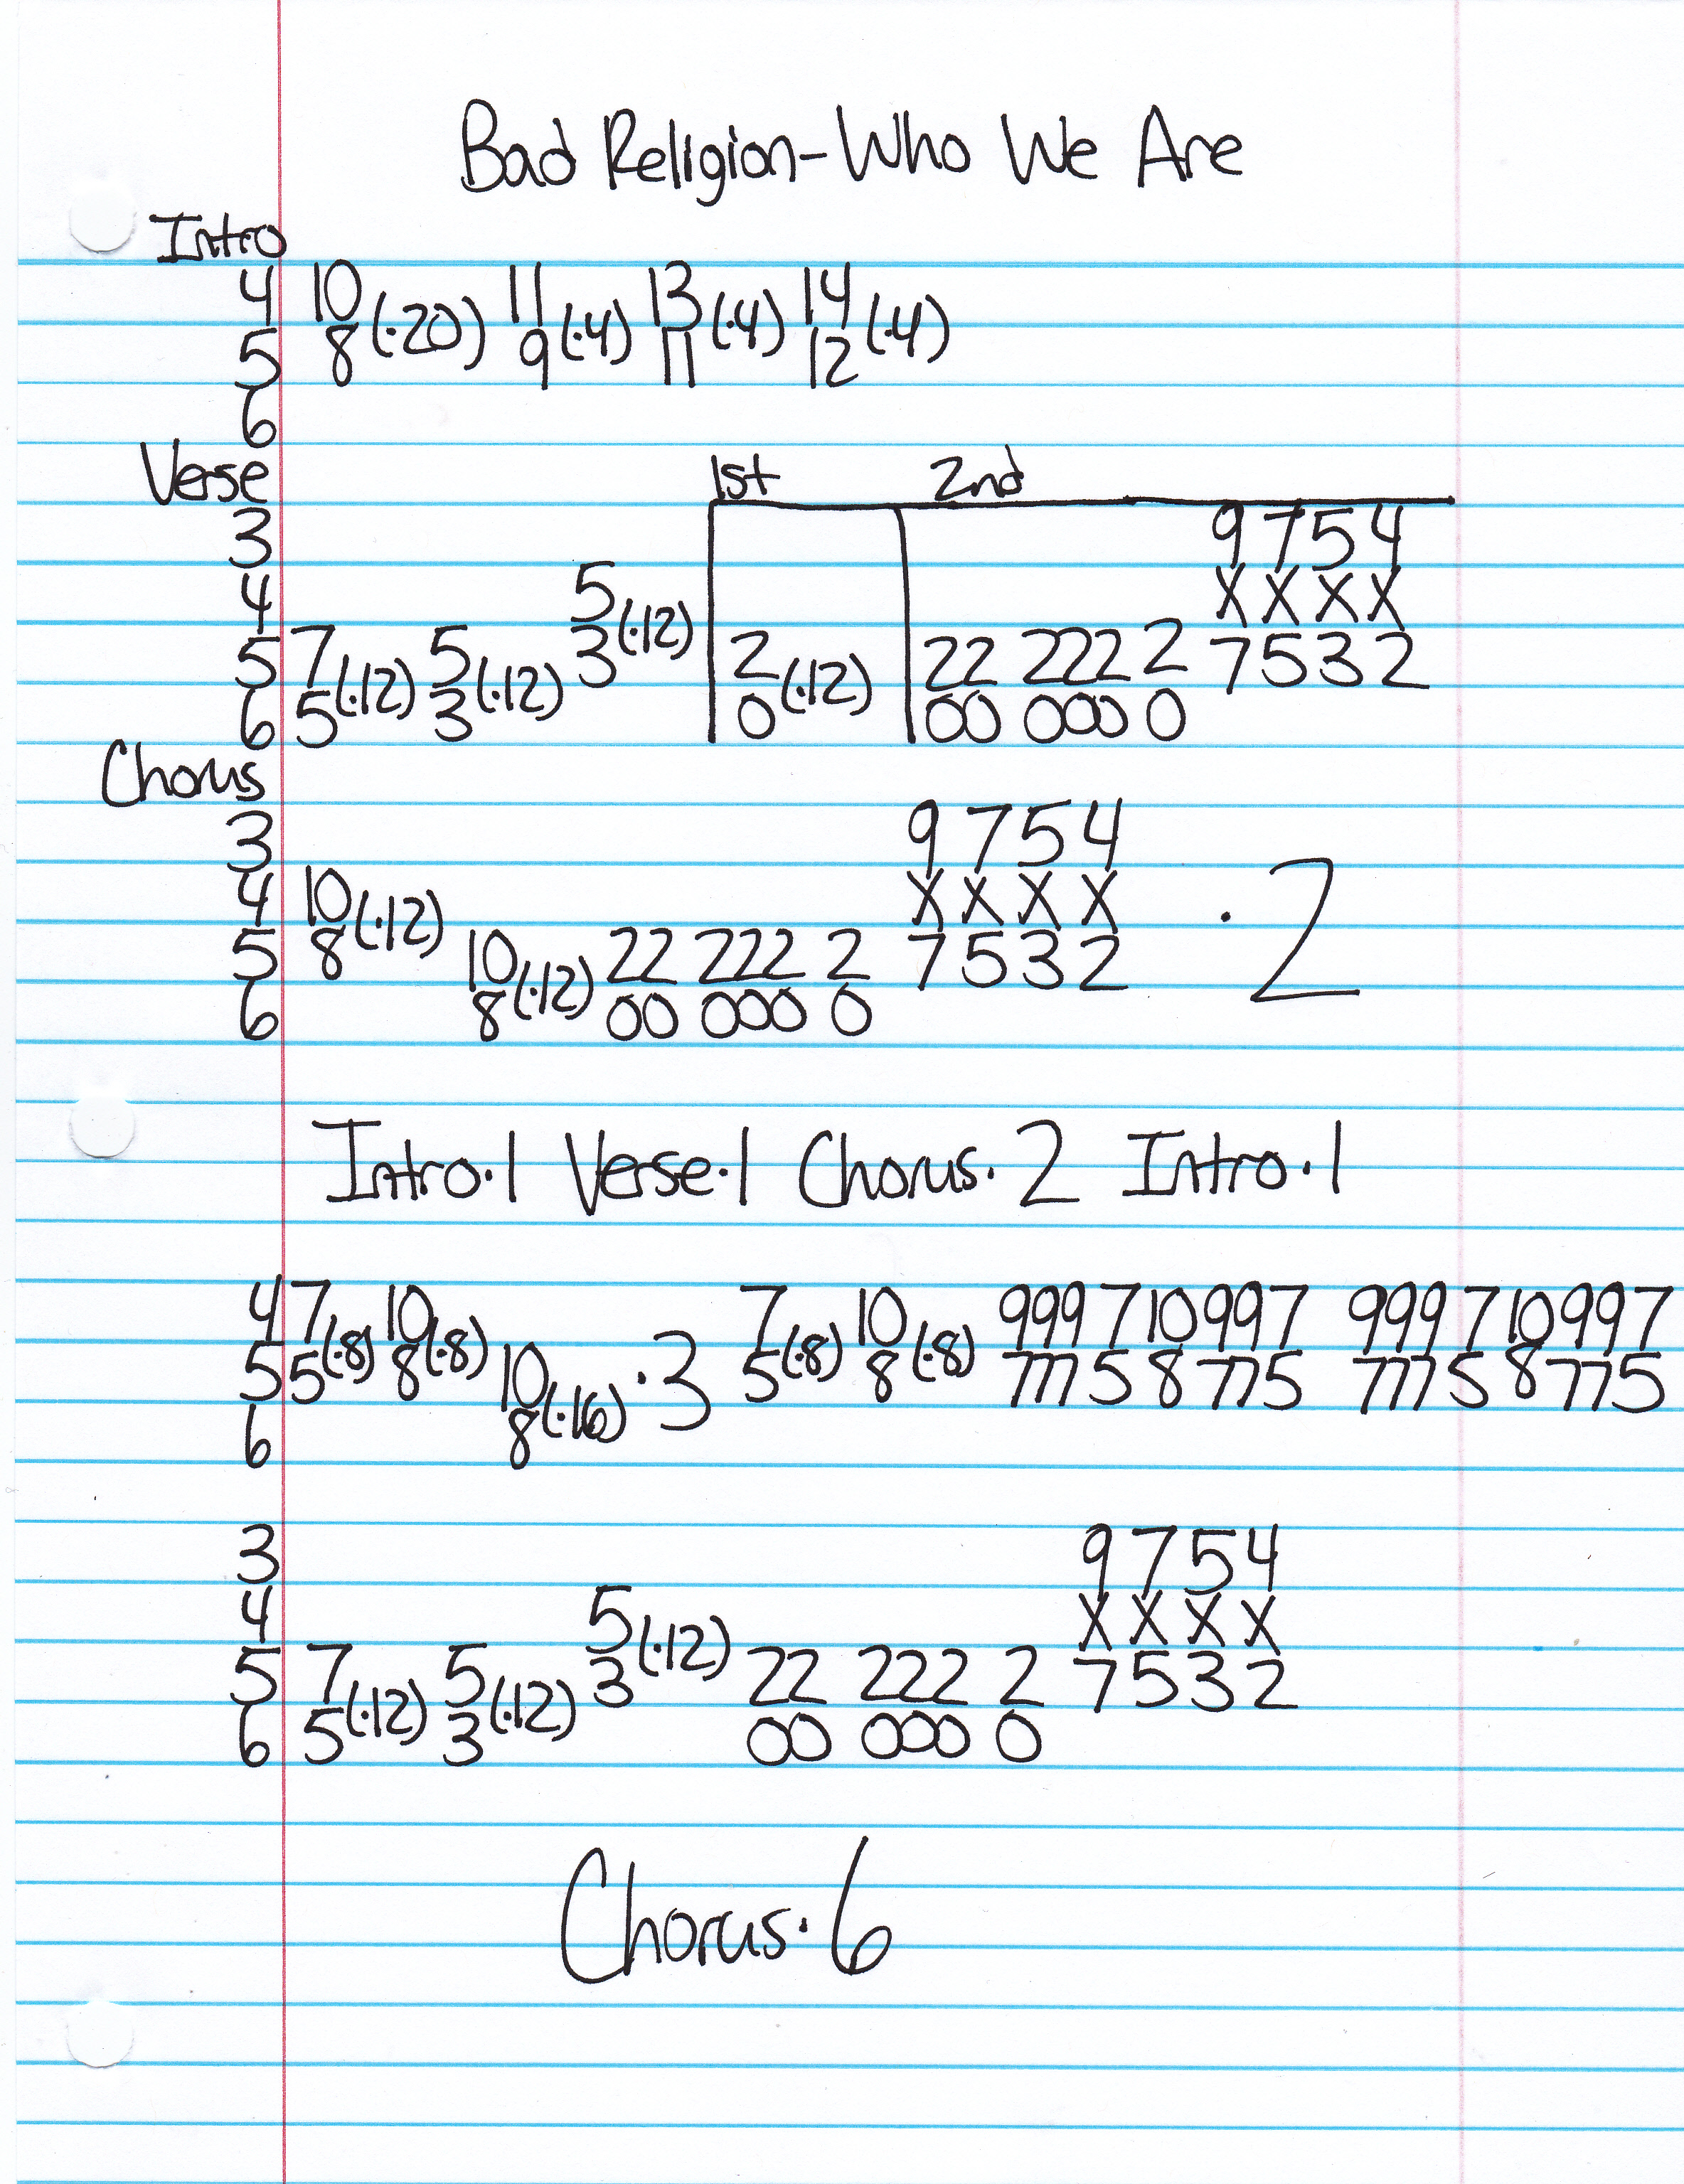 Bad Religion-Who We Are
Intro
4 10 11 13 14
5 8(·20) 9(·4) 11(·4) 12(·4)
6
Verse 1st 2nd
3 9 7 5 4
4 5 X X X X
5 7 5 3(·12) 2 22 222 2 7 5 3 2
6 5(·12) 3(·12) 0(·12) 00 000 0
Chorus
3 9 7 5 4
4 10 X X X X · 2
5 8(·12) 10 22 222 2 7 5 3 2
6 8(·12) 00 000 0
Intro·1 Verse·1 Chorus·2 Intro·1
4 7 10 7 10 999 7 10 997 999 7 10 997
5 5(·8) 8(·8) 10 ·3 5(·8) 8(·8) 777 5 8 775 777 5 8 775
6 8(·16)
3 9 7 5 4
4 5 X X X X
5 7 5 3(·12) 22 222 2 7 5 3 2
6 5(·12) 3(·12) 00 000 0
Chorus·6